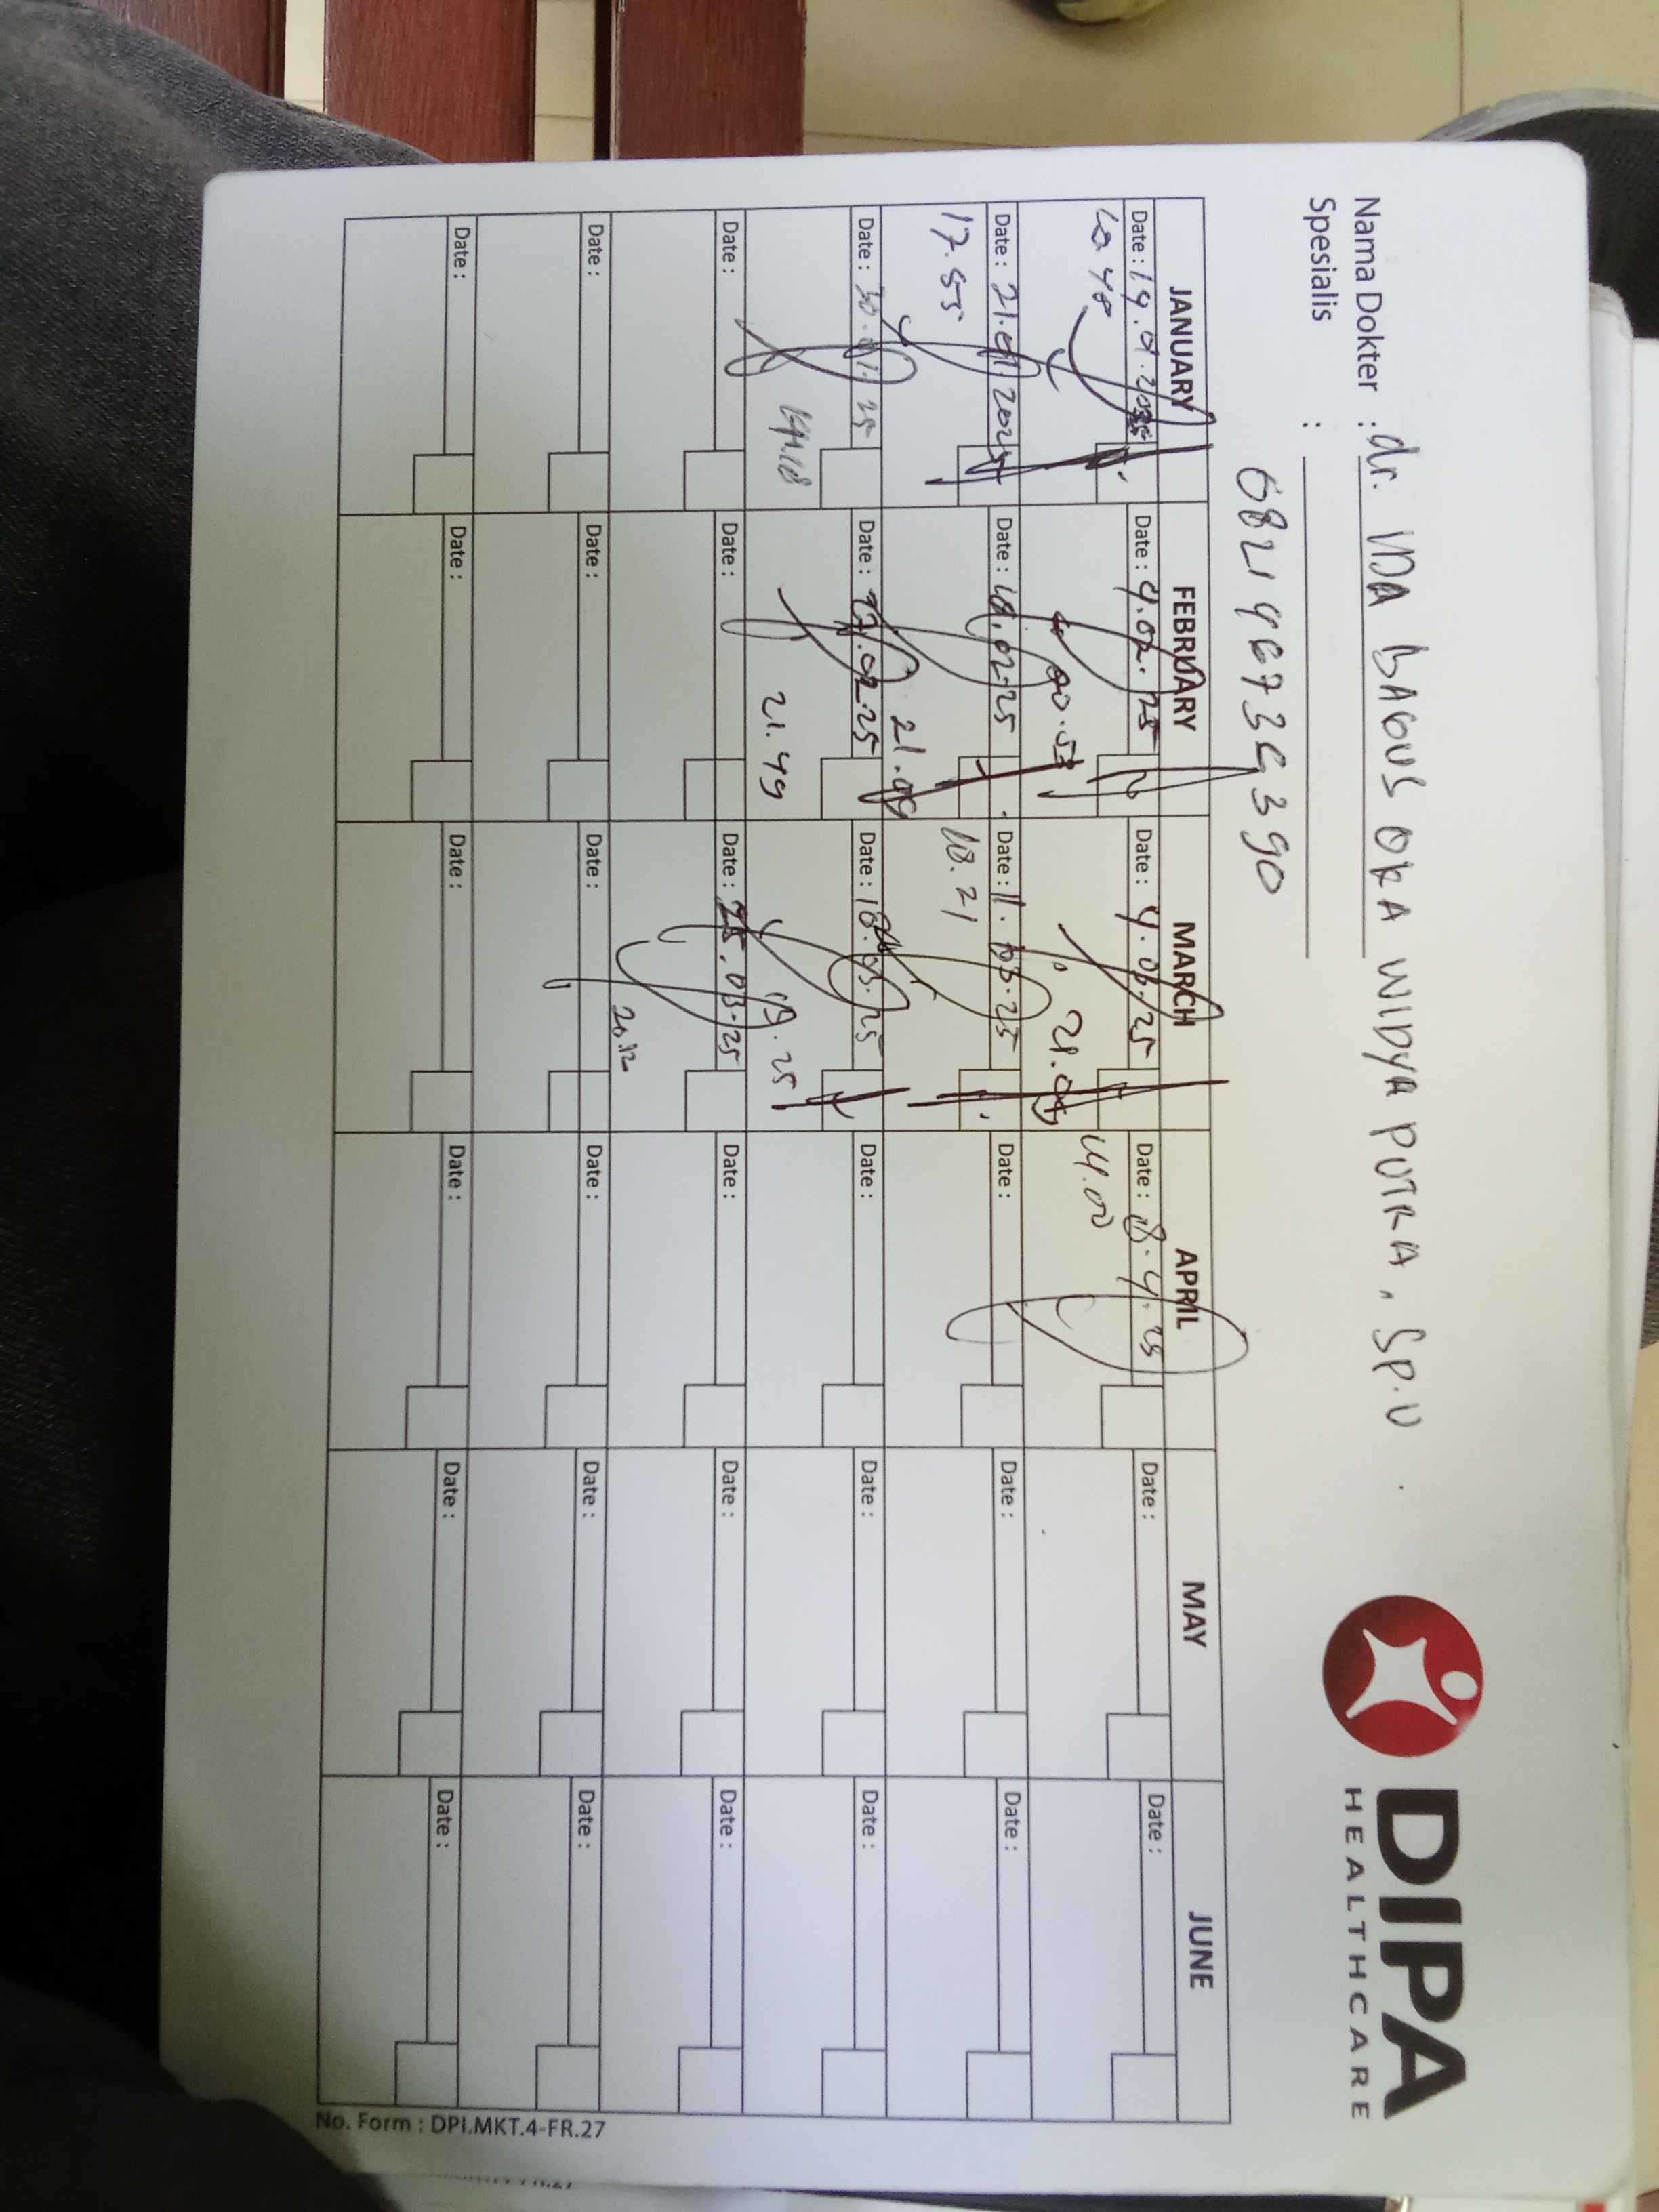 DIPA
HEALTHCARE
Nama Dokter : dr. IDA BAGUS OKA WIDYA PUTRA, Sp.U
Spesialis :
JANUARY FEBRUARY MARCH APRIL MAY JUNE
Date : Date : 4.02.25 Date : 4.03.25 Date : 8.4.25 Date : Date :
21.09 14.00
Date : 21.01.2025 Date : 18.02.25 Date : 11.03.25 Date : Date : Date :
17.55 21.09 18.21
Date : 30.01.25 Date : 27.02.25 Date : 18.03.25 Date : Date : Date :
21.49 19.25
Date : Date : Date : 25.03.25 Date : Date : Date :
20.12
Date : Date : Date : Date : Date : Date :
Date : Date : Date : Date : Date : Date :
No. Form : DPI.MKT.4-FR.27